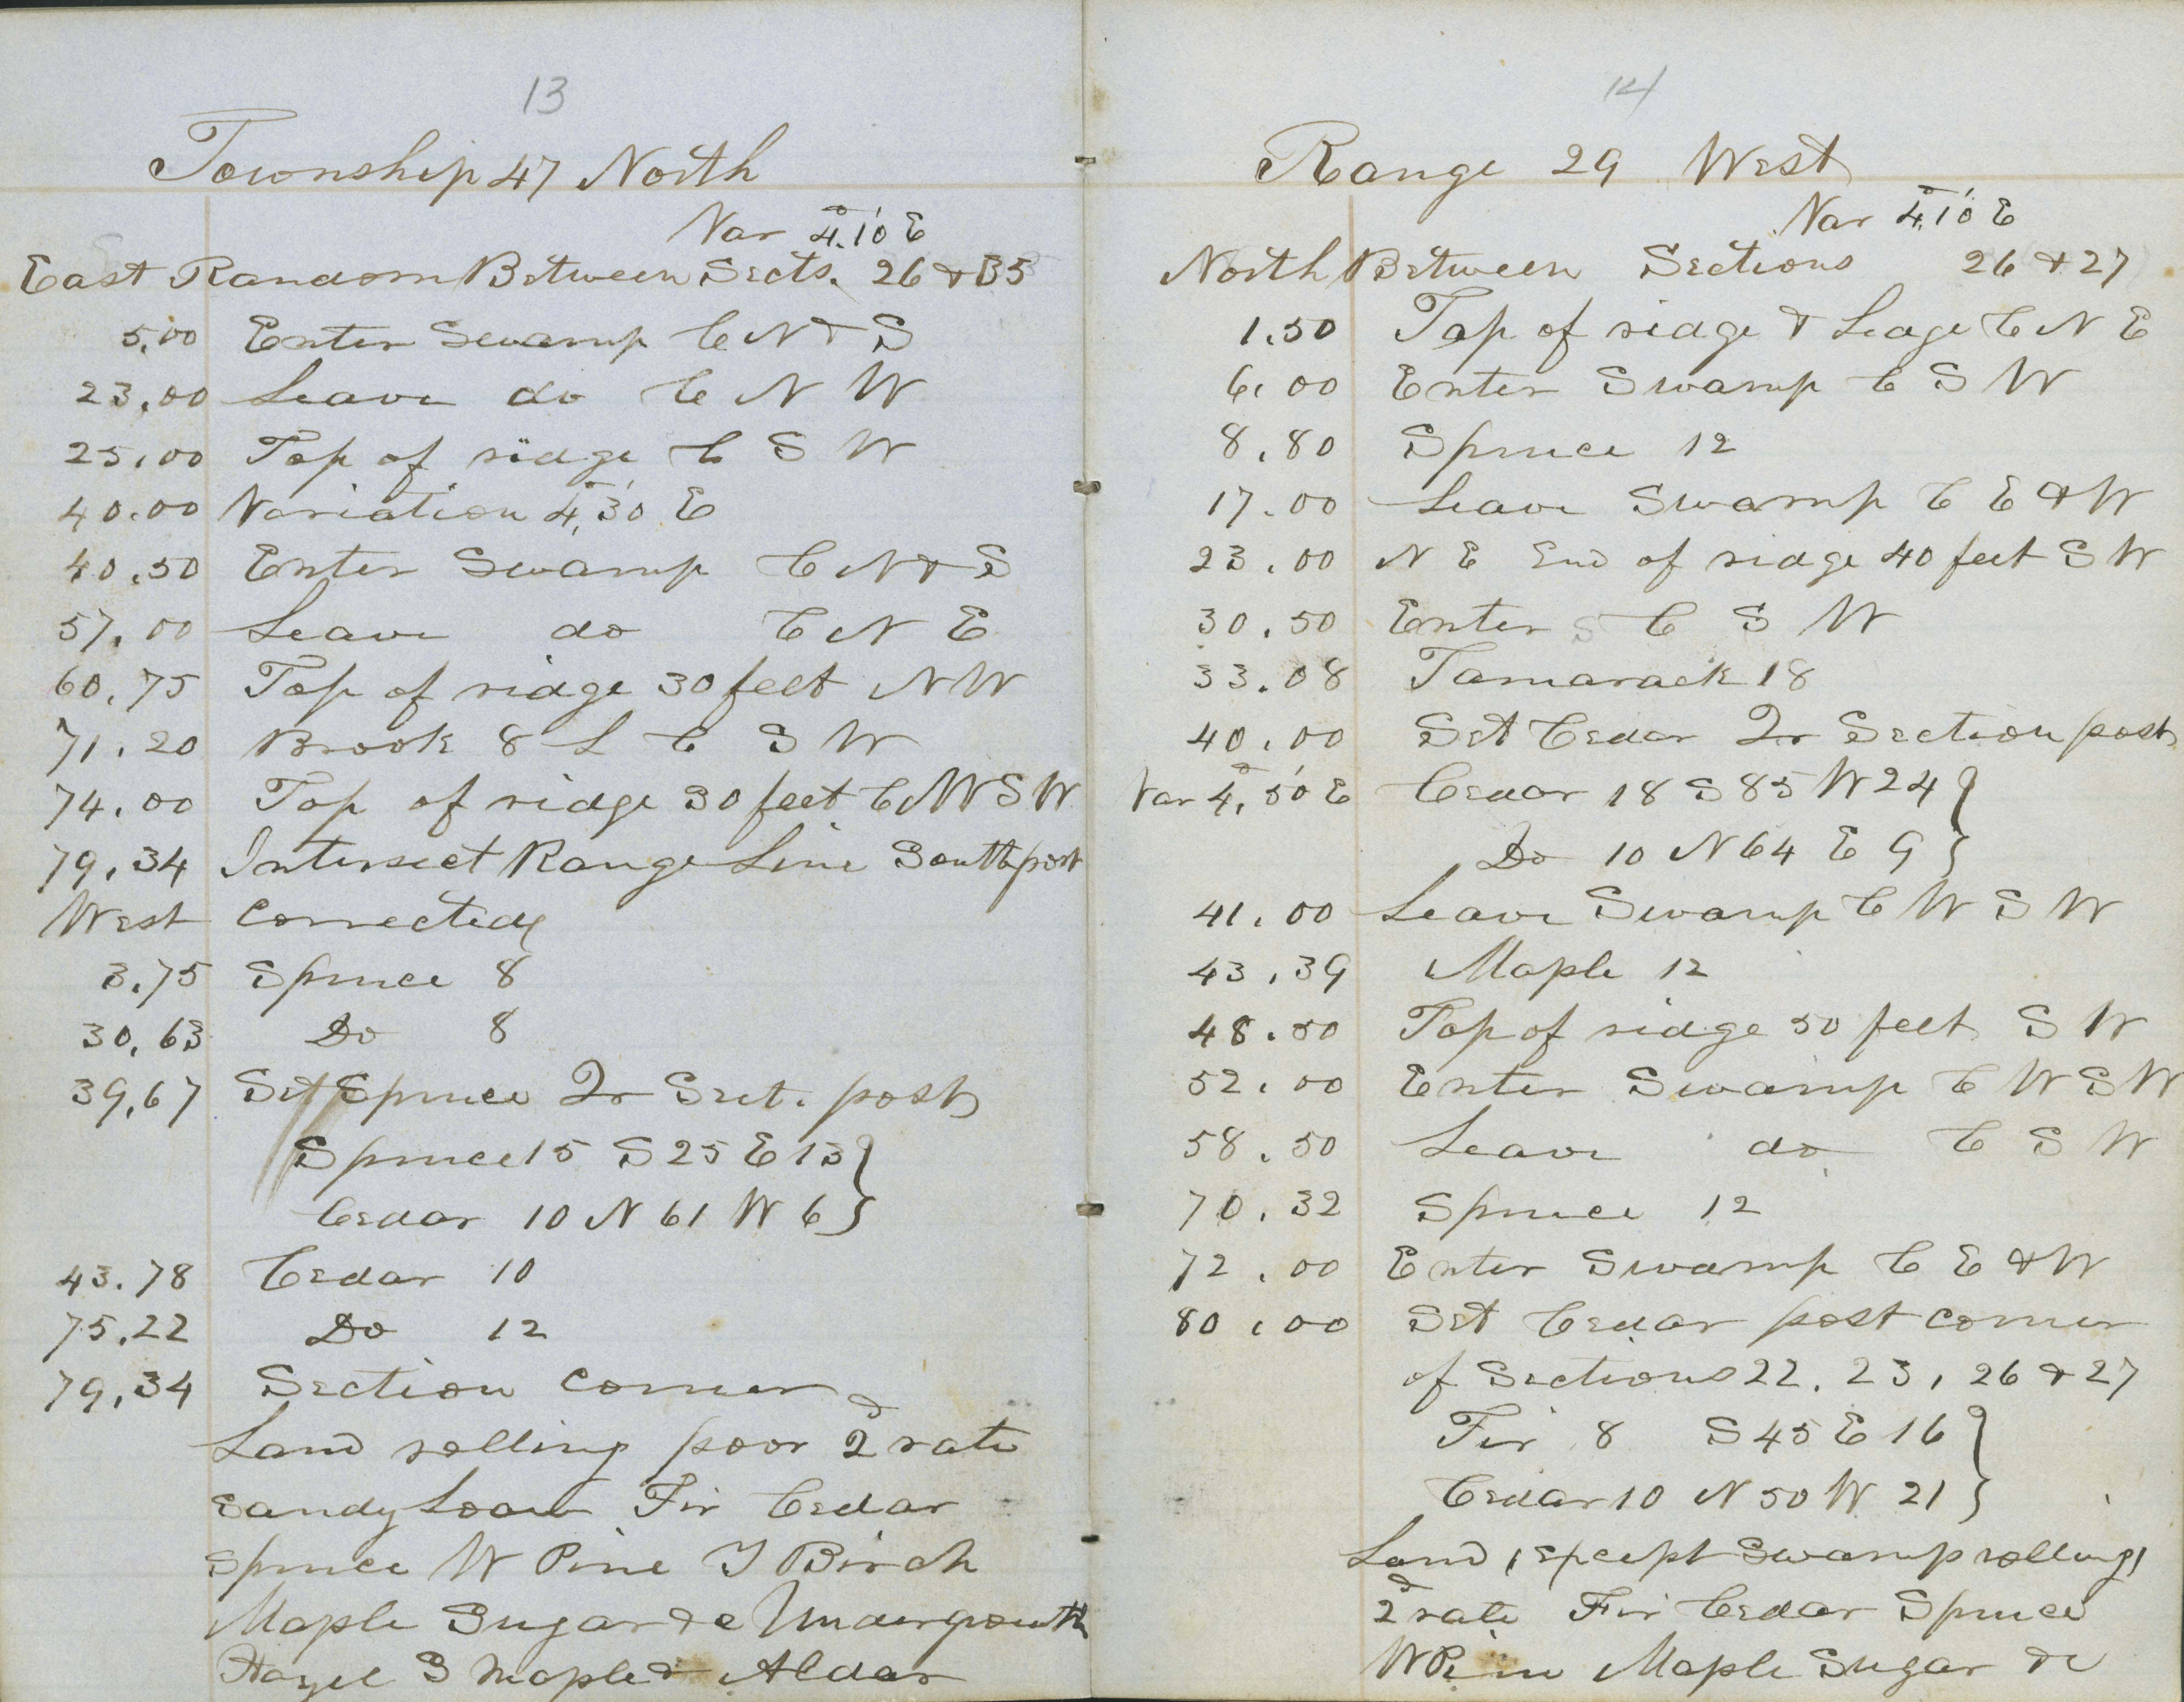 13
Township 47 North
Var 4°.10' E
East Random Between Sects. 26 & 35
5.00 Enter Swamp C N & S
23.00 Leave do C N W
25.00 Top of ridge C S W
40.00 Variation 4°,30' E
40.50 Enter Swamp C N & S
57.00 Leave do C N E
60.75 Top of ridge 30 feet N W
71.20 Brook 8 L C S W
74.00 Top of ridge 30 feet C W S W
79,34 Intersect Range Line South post
West Corrected
3.75 Spruce 8
30,63 Do 8
39,67 Set Spruce Qr Sect. post
Spruce 15 S 25 E 13 }
Cedar 10 N 61 W 6 }
43.78 Cedar 10
75.22 Do 12
79,34 Section Corner
Land rolling poor 2d rate
Sandy Loam Fir Cedar
Spruce W Pine Y Birch
Maple Sugar &c Undergrowth
Hazel S Maple & Aldar
14
Range 29 West
Var 4°.10' E
North Between Sections 26 & 27
1.50 Top of ridge & Ledge C N E
6.00 Enter Swamp C S W
8.80 Spruce 12
17.00 Leave Swamp C E & W
23.00 N E End of ridge 40 feet S W
30.50 Enter S C S W
33.08 Tamarack 18
40.00 Set Cedar Qr Section post
Var 4°,50' E Cedar 18 S 85 W 24 }
Do 10 N 64 E 9 }
41.00 Leave Swamp C W S W
43,39 Maple 12
48.50 Top of ridge 50 feet S W
52.00 Enter Swamp C W S W
58.50 Leave do C S W
70.32 Spruce 12
72.00 Enter Swamp C E & W
80.00 Set Cedar post corner
of Sections 22, 23, 26 & 27
Fir 8 S 45 E 16 }
Cedar 10 N 50 W 21 }
Land, except Swamp rolling,
2d rate Fir Cedar Spruce
W Pine Maple Sugar &c